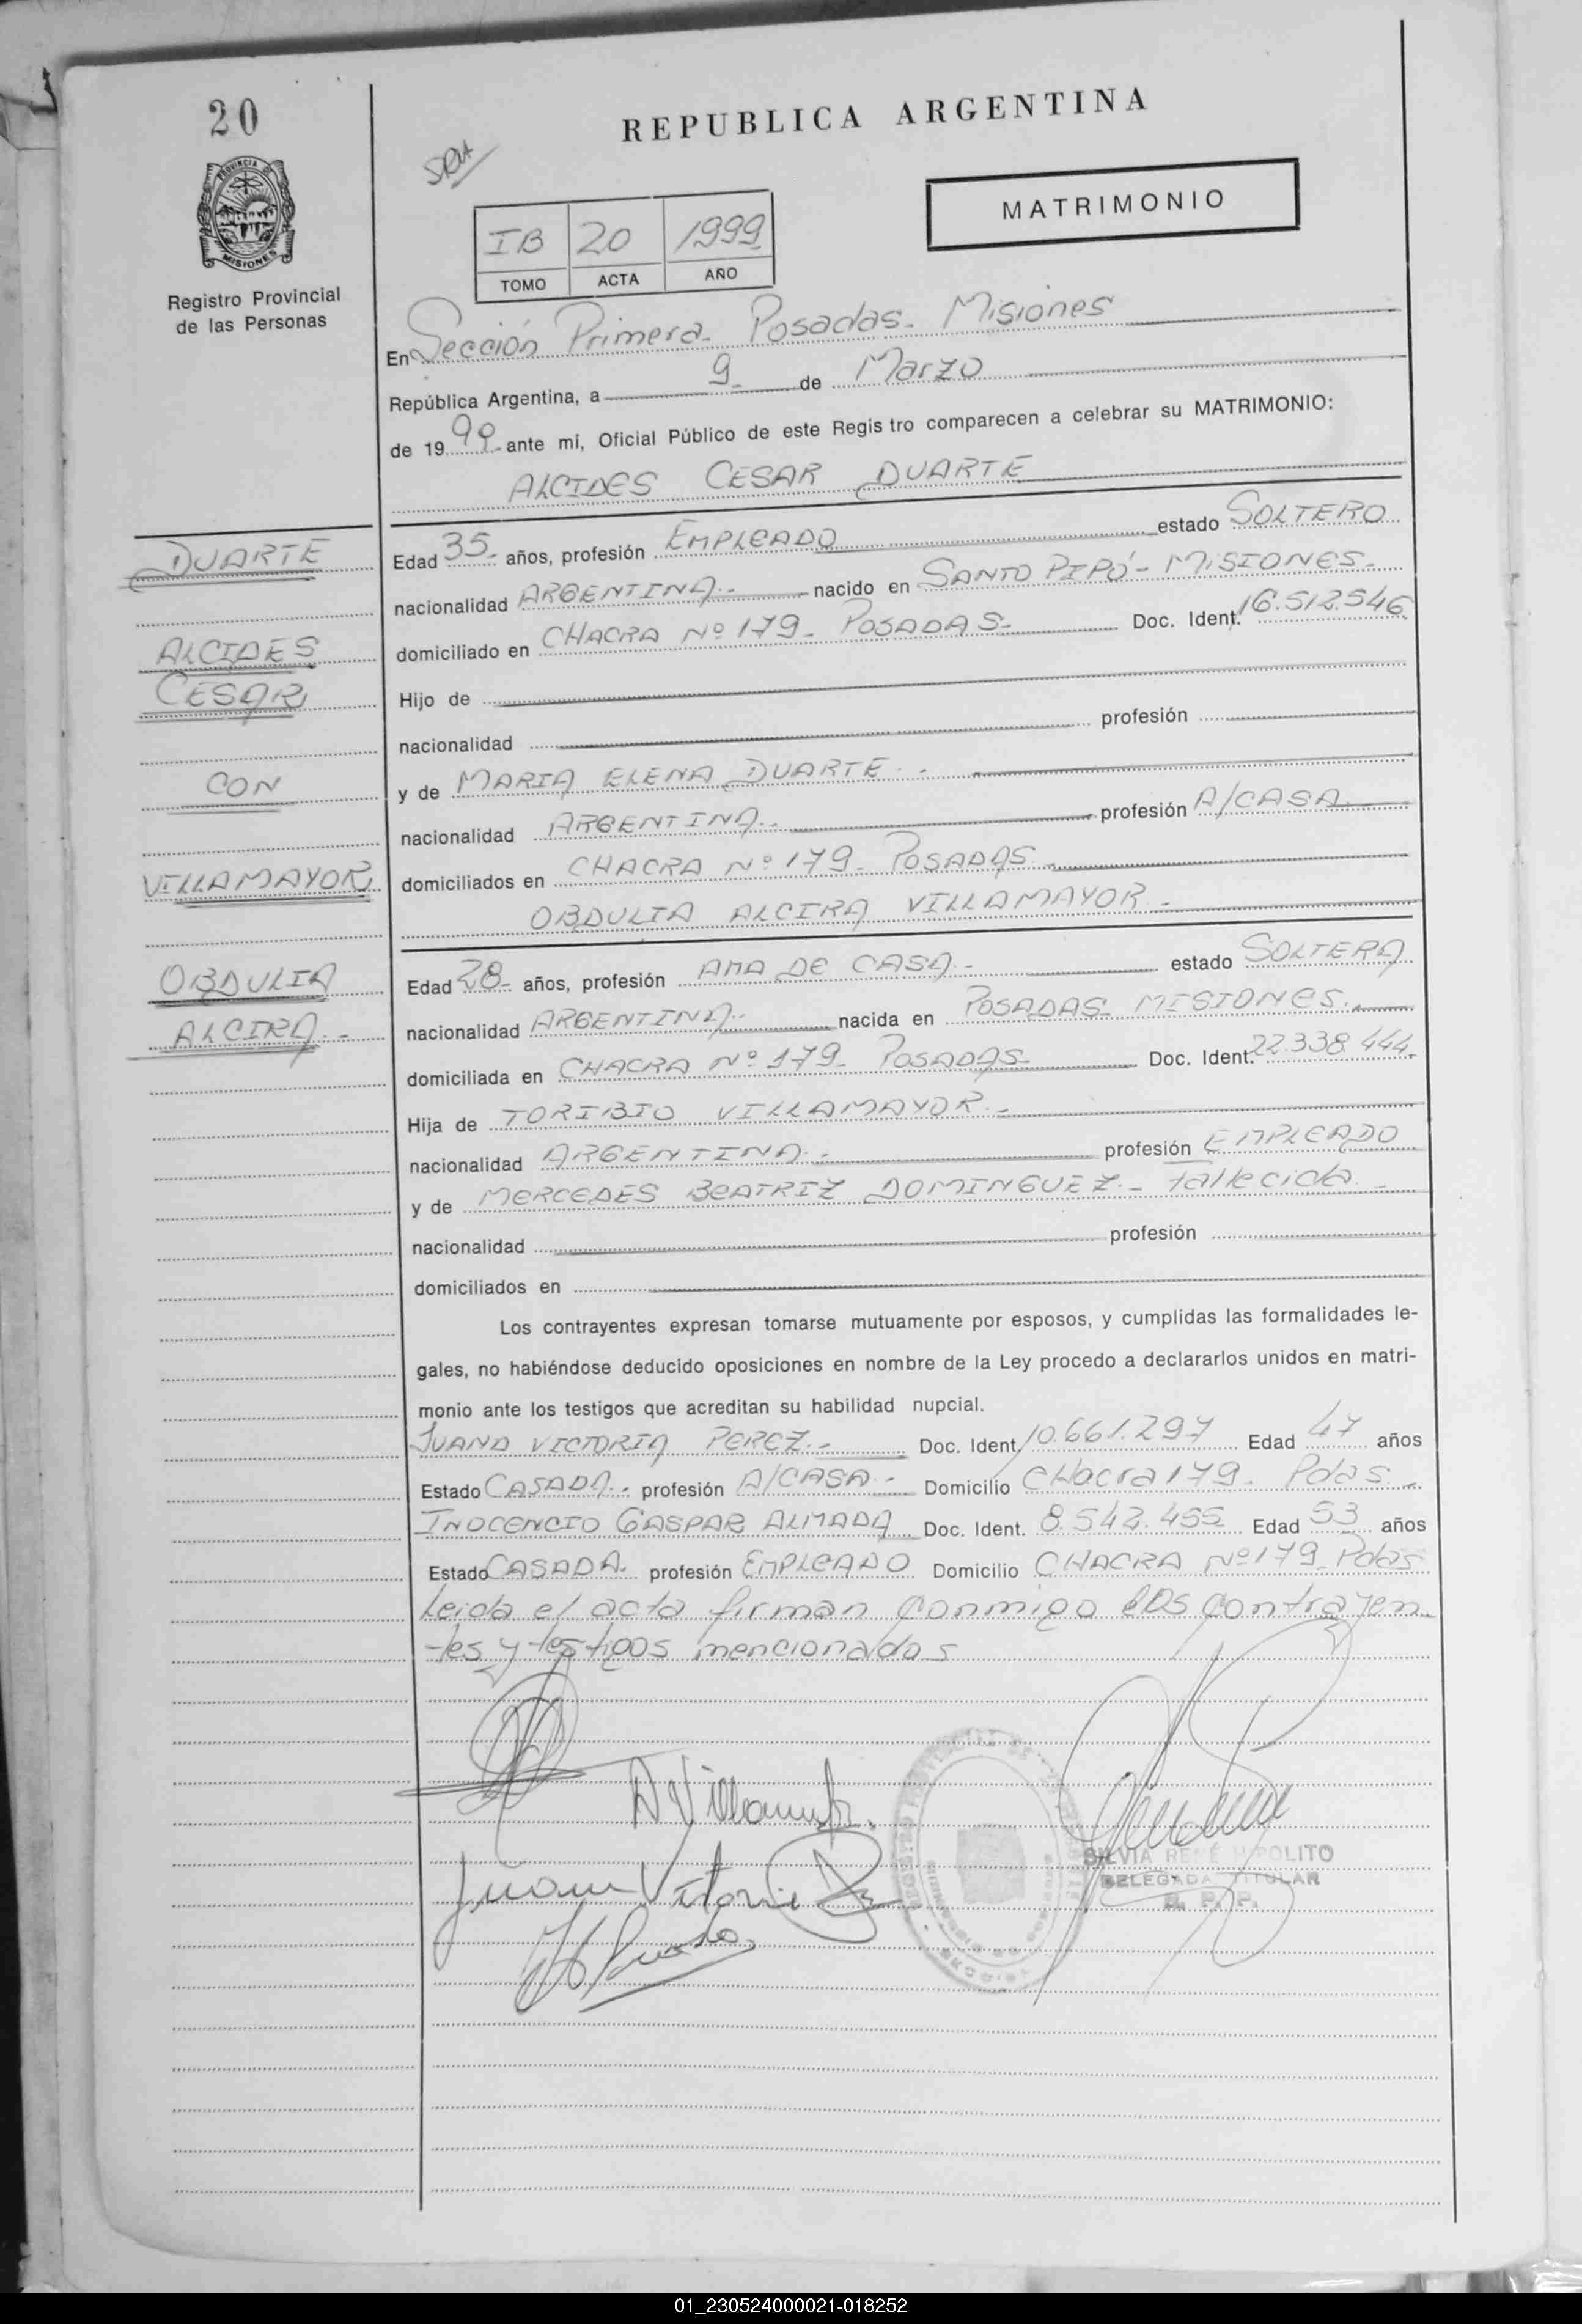 20
REPUBLICA ARGENTINA
PROVINCIA
MISIONES
Registro Provincial
de las Personas
MATRIMONIO
IB 20 1999
TOMO ACTA AÑO
En Sección Primera- Posadas- Misiones
República Argentina, a 9- de Marzo
de 19 99- ante mí, Oficial Público de este Regis tro comparecen a celebrar su MATRIMONIO:
ALCIDES CESAR DUARTE
DUARTE
ALCIDES
CESAR
CON
VILLAMAYOR
OBDULIA
ALCIRA.-
Edad 35- años, profesión EMPLEADO estado SOLTERO
nacionalidad ARGENTINA.- nacido en SANTO PIPÓ- MISIONES-
domiciliado en CHACRA Nº 179- POSADAS- Doc. Ident. 16.512.546
Hijo de
nacionalidad profesión
y de MARIA ELENA DUARTE.-
nacionalidad ARGENTINA.- profesión A/CASA
domiciliados en CHACRA Nº 179- POSADAS-
OBDULIA ALCIRA VILLAMAYOR-
Edad 28- años, profesión AMA DE CASA.- estado SOLTERA
nacionalidad ARGENTINA.- nacida en POSADAS- MISIONES.-
domiciliada en CHACRA Nº 179- POSADAS- Doc. Ident. 22.338.444.
Hija de TORIBIO VILLAMAYOR.-
nacionalidad ARGENTINA.- profesión EMPLEADO
y de MERCEDES BEATRIZ DOMINGUEZ.- fallecida-
nacionalidad profesión
domiciliados en
Los contrayentes expresan tomarse mutuamente por esposos, y cumplidas las formalidades le-
gales, no habiéndose deducido oposiciones en nombre de la Ley procedo a declararlos unidos en matri-
monio ante los testigos que acreditan su habilidad nupcial.
JUANA VICTORIA PEREZ.- Doc. Ident. 10.661.297 Edad 47 años
Estado CASADA.- profesión A/CASA- Domicilio CHacra 179- Pdas.-
INOCENCIO GASPAR ALMADA Doc. Ident. 8.542.455 Edad 53 años
Estado CASADA. profesión EMPLEADO Domicilio CHACRA Nº 179- Pdas
Leida el acta firman conmigo los contrayen
-tes y testigos mencionados
SILVIA RENÉ HIPOLITO
DELEGADA TITULAR
R. P. P.
01_230524000021-018252